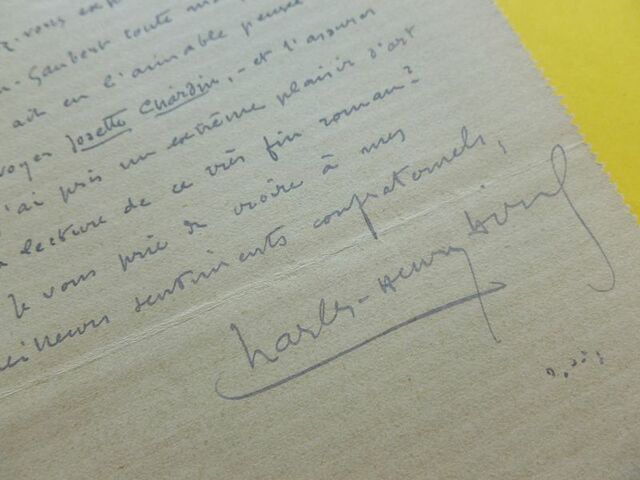 vous exp
Gaubert toute ma
ait eu l'aimable pensée
voyer Josette Chardin, - et l'assurer
j'ai pris un extrême plaisir d'art
lecture de ce très fin roman?
Je vous prie de croire à mes
meilleurs sentiments confraternels,
Charles-Henry Hirsch